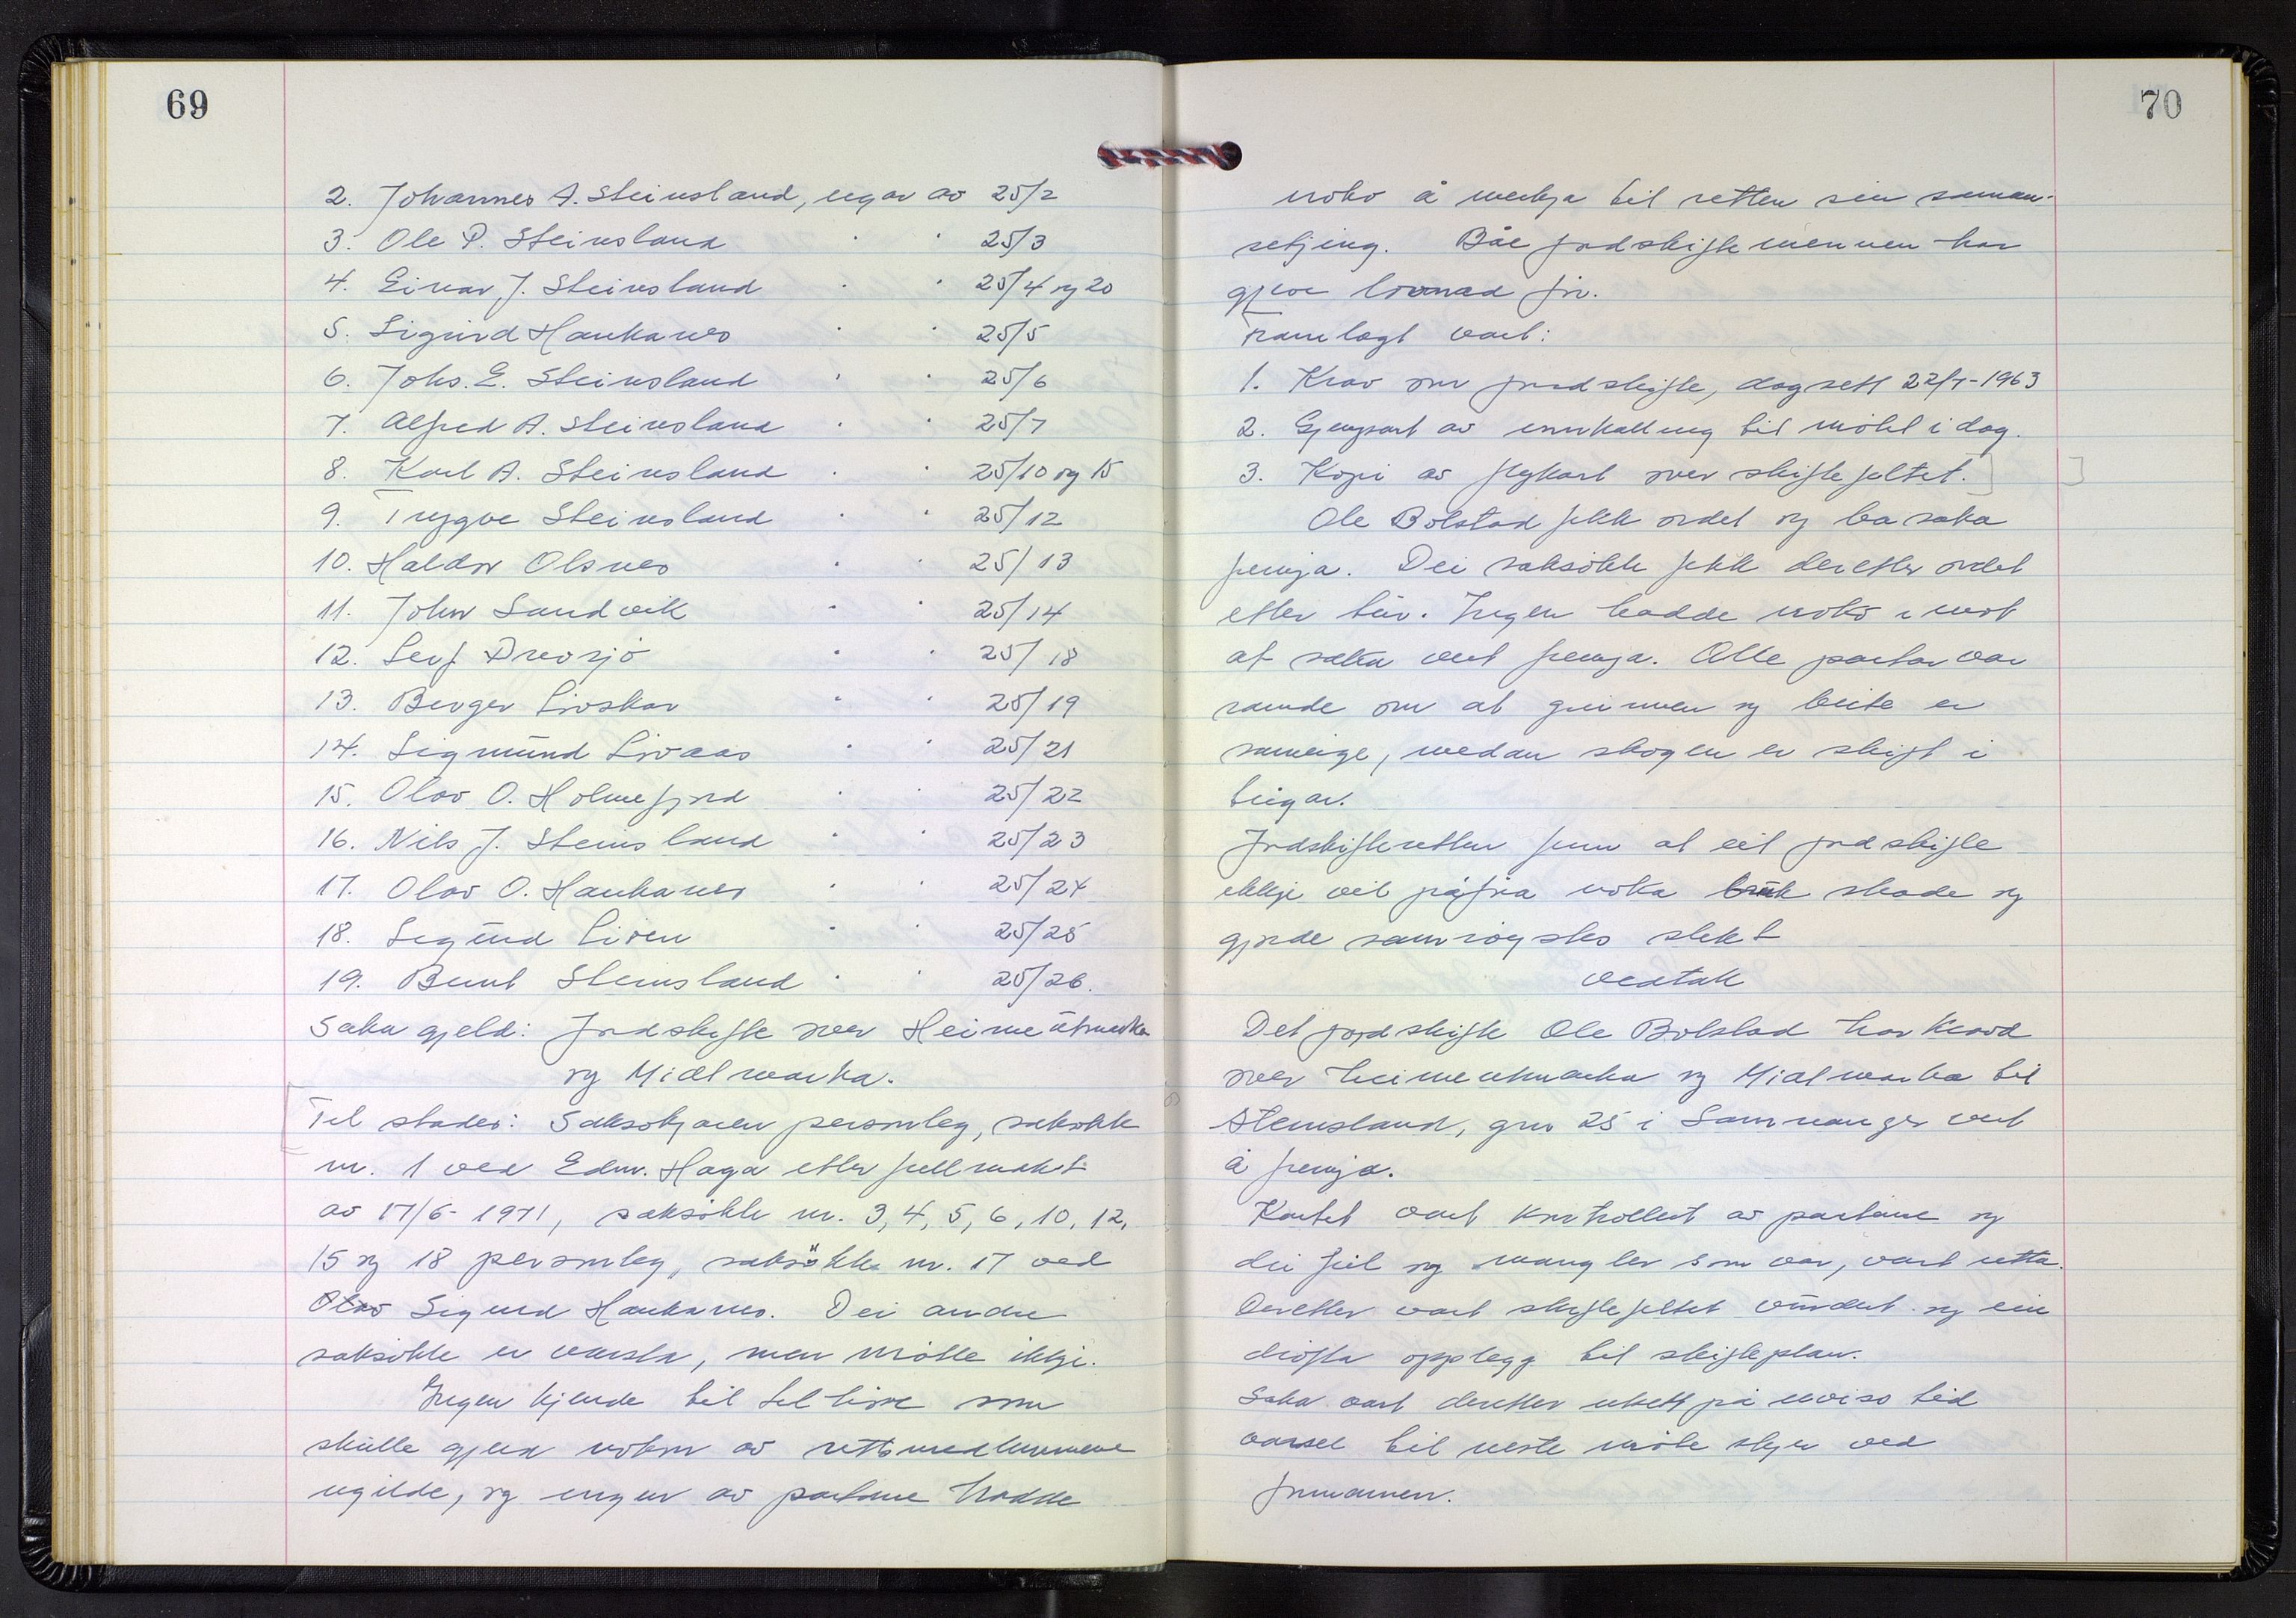 69
2. Johannes A. Steinsland, eigar av 25/2
3. Ole P. Steinsland " " 25/3
4. Einar J. Steinsland " " 25/4 og 20
5. Sigurd Haukanes " " 25/5
6. Johs. E. Steinsland " " 25/6
7. Alfred A. Steinsland " " 25/7
8. Karl A. Steinsland " " 25/10 og 15
9. Trygve Steinsland " " 25/12
10. Haldor Olsnes " " 25/13
11. John Sandvik " " 25/14
12. Leif Drevsjø " " 25/18
13. Berger Livskar " " 25/19
14. Sigmund Livaas " " 25/21
15. Olav O. Holmefjord " " 25/22
16. Nils J. Steinsland " " 25/23
17. Olav O. Haukanes " " 25/24
18. Sigurd Liven " " 25/25
19. Bernt Steinsland " " 25/26.
Saka gjeld: Jordskifte over Heimeutmarka
og Midlmarka.
Til stades: Saksøkjaren personleg, saksøkte
nr. 1 ved Edm. Haga etter fullmakt
av 17/6-1971, saksøkte nr. 3, 4, 5, 6, 10, 12,
15 og 18 personleg, saksøkte nr. 17 ved
Olav Sigurd Haukanes. Dei andre
saksøkte er varsla, men møtte ikkje.
Ingen kjende til tilhøve som
skulle gjera nokon av rettsmedlemmene
ugilde, og ingen av partane hadde
70
noko å merkja til retten sin saman-
setjing. Båe jordskiftemennen har
gjeve lovnad før.
Framlagt vart:
1. Krav om jordskifte, dagsett 22/7-1963
2. Gjenpart av innkalling til møtet i dag.
3. Kopi av flykart over skiftefeltet.
Ole Bolstad fekk ordet og ba saka
fremja. Dei saksøkte fekk deretter ordet
etter tur. Ingen hadde noko i mot
at saka vert fremja. Alle partar var
samde om at grunnen og beite er
sameige, medan skogen er skift i
teigar.
Jordskifteretten fann at eit jordskifte
ikkje vil påføra noka bruk skade og
gjorde samrøystes slikt
vedtak
Det jordskifte Ole Bolstad har kravd
over heimeutmarka og Midlmarka til
Steinsland, gnr 25 i Samnanger vert
å fremja.
Kartet vart kontrollert av partane og
dei feil og mangler som var, vart retta.
Deretter vart skiftefeltet vurdert og ein
drøfta opplegg til skifteplan.
Saka vart deretter utsett på uviss tid
varsel til neste møte skjer ved
formannen.